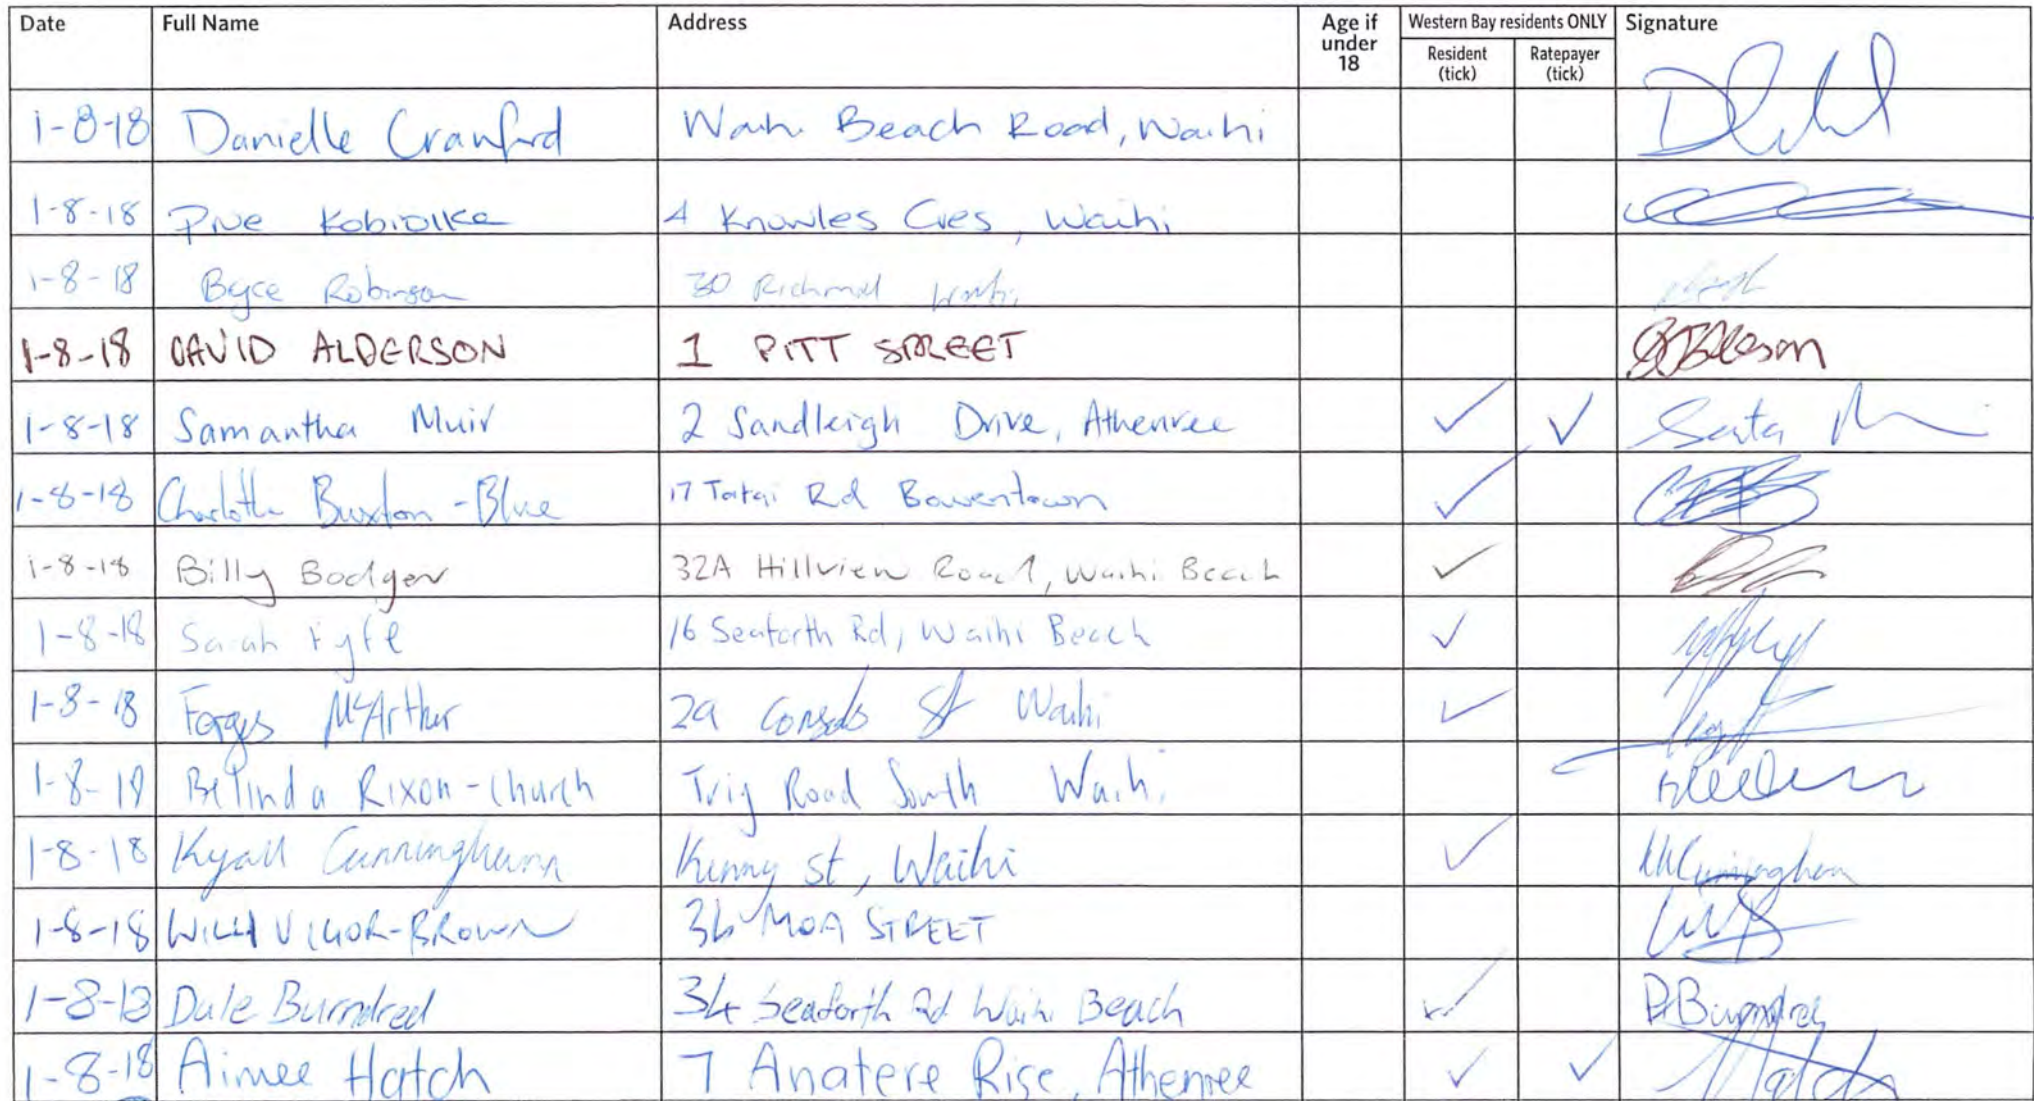 Date Full Name Address Age if under 18 Western Bay residents ONLY Resident (tick) Ratepayer (tick) Signature
1-8-18 Danielle Cranford Waihi Beach Road, Waihi
1-8-18 Prue Kobiolke 4 Knowles Cres, Waihi
1-8-18 Bryce Robinson 30 Richmond Waihi
1-8-18 DAVID ALDERSON 1 PITT STREET
1-8-18 Samantha Muir 2 Sandleigh Drive, Athenree ✓ ✓
1-8-18 Charlotte Buxton-Blue 17 Tatai Rd Bowentown ✓
1-8-18 Billy Bodger 32A Hillview Road, Waihi Beach ✓
1-8-18 Sarah Fyfe 16 Seaforth Rd, Waihi Beach ✓
1-8-18 McArthur 2a Consols St Waihi ✓
1-8-18 Belinda Rixon-Church Trig Road South Waihi
1-8-18 Kyall Cunningham Kenny St, Waihi ✓ Cunningham
1-8-18 VIGOR-BROWN MOA STREET
1-8-18 Dale Burndred 34 Seaforth Rd Waihi Beach ✓ D Burndred
1-8-18 Aimee Hatch 7 Anatere Rise, Athenree ✓ ✓ Hatch